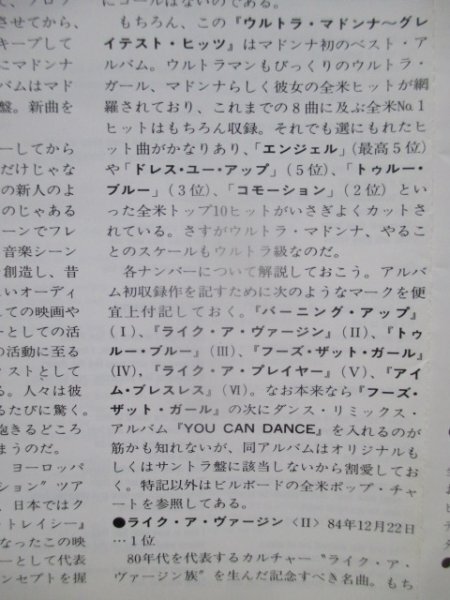 にコールはないのである。
もちろん、この『ウルトラ・マドンナ〜グレ
イテスト・ヒッツ』はマドンナ初のベスト・ア
ルバム。ウルトラマンもびっくりのウルトラ・
ガール、マドンナらしく彼女の全米ヒットが網
羅されており、これまでの8曲に及ぶ全米No.1
ヒットはもちろん収録。それでも選にもれたヒ
ット曲がかなりあり、「エンジェル」(最高5位)
や「ドレス・ユー・アップ」(5位)、「トゥルー・
ブルー」(3位)、「コモーション」(2位)とい
った全米トップ10ヒットがいさぎよくカットさ
れている。さすがウルトラ・マドンナ、やるこ
とのスケールもウルトラ級なのだ。
各ナンバーについて解説しておこう。アルバ
ム初収録作を記すために次のようなマークを便
宜上付記しておく。『バーニング・アップ』
(I)、『ライク・ア・ヴァージン』(II)、『トゥ
ルー・ブルー』(III)、『フーズ・ザット・ガール』
(IV)、『ライク・ア・プレイヤー』(V)、『アイ
ム・ブレスレス』(VI)。なお本来なら『フーズ・
ザット・ガール』の次にダンス・リミックス・
アルバム『YOU CAN DANCE』を入れるのが
筋かも知れないが、同アルバムはオリジナルも
しくはサントラ盤に該当しないから割愛してお
く。特記以外はビルボードの全米ポップ・チャ
ートを参照してある。
●ライク・ア・ヴァージン〈II〉84年12月22日
…1位
80年代を代表するカルチャー"ライク・ア・
ヴァージン族"を生んだ記念すべき名曲。もち
させてから、
キープして
にマドンナ
バムはマド
盤。新曲を
ーしてから
だけじゃな
の新人のよ
のじゃある
ーンでフレ
音楽シーン
創造し、昔
いオーディ
しての映画や
ーとしての活
の活動に至る
ィストとして
る。人々は彼
るたびに驚く。
飽きるどころ
まうのだ。
ヨーロッパ
ション"ツア
、日本ではク
・トレイシー』
なったこの映
ーとして代表
ンセプトを握